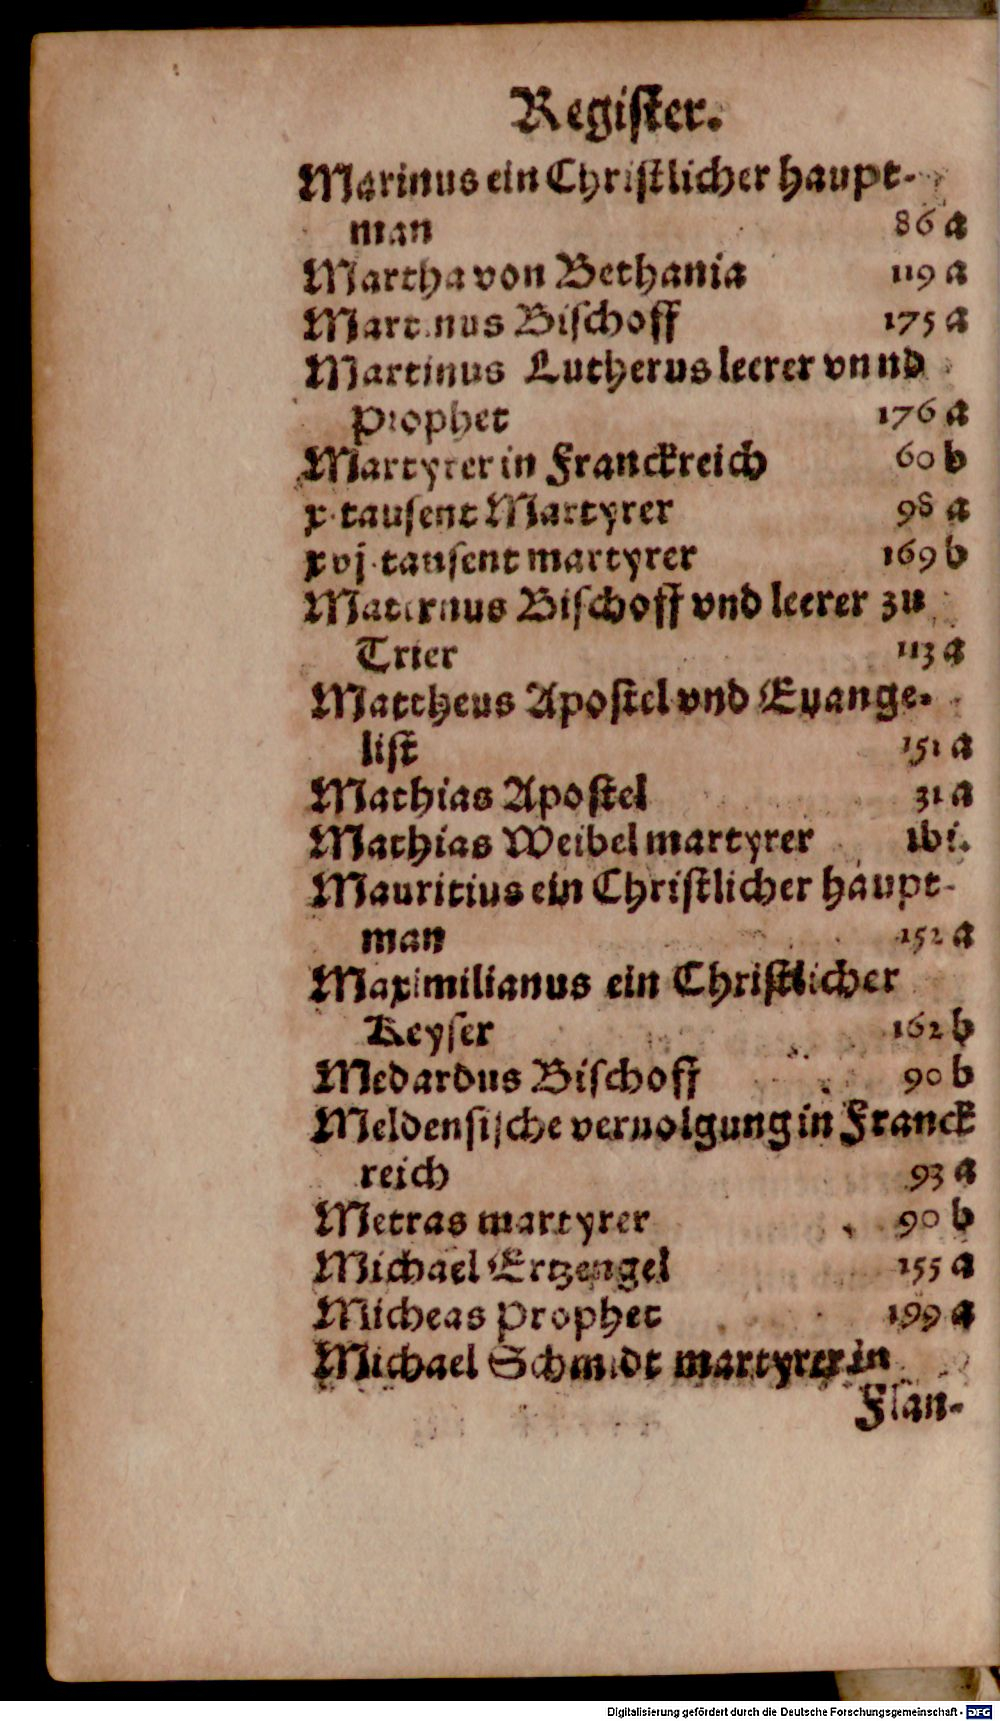 Register.
Marinus ein Christlicher haupt-
man 86 a
Martha von Bethania 119 a
Martinus Bischoff 175 a
Martinus Lutherus leerer vnnd
Prophet 176 a
Martyrer in Franckreich 60 b
x. tausent Martyrer 98 a
xvj. tausent martyrer 169 b
Maternus Bischoff vnd leerer zu
Trier 113 a
Mattheus Apostel vnd Euange-
list 151 a
Mathias Apostel 31 a
Mathias Weibel martyrer ibi.
Mauritius ein Christlicher haupt-
man 152 a
Maximilianus ein Christlicher
Keyser 162 b
Medardus Bischoff 90 b
Meldensische veruolgung in Franck
reich 93 a
Metras martyrer 90 b
Michael Ertzengel 155 a
Micheas Prophet 199 a
Michael Schmidt martyrer in
Flan-
Digitalisierung gefördert durch die Deutsche Forschungsgemeinschaft - DFG